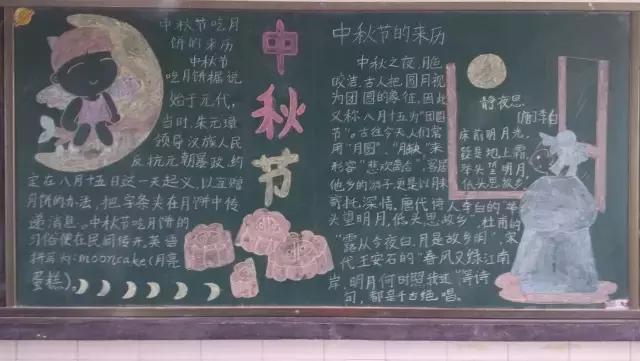 中秋节吃月
饼的来历
中秋节
吃月饼据说
始于元代,
当时,朱元璋
领导汉族人民
反抗元朝暴政,约
定在八月十五日这一天起义,以互赠
月饼的办法,把字条夹在月饼中传
递消息。中秋节吃月饼的
习俗便在民间传开,英语
拼写为:mooncake(月亮
蛋糕)。
中秋节
中秋节的来历
中秋之夜,月色
皎洁,古人把圆月视
为团圆的象征,因此
又称八月十五为“团圆
节”。古往今天人们常
用“月圆”、“月缺”来
形容“悲欢离合”,客居
他乡的游子更是以月来
寄托深情。唐代诗人李白的“举
头望明月,低头思故乡”,杜甫的
“露从今夜白,月是故乡明”,宋
代王安石的“春风又绿江南
岸,明月何时照我还”等诗
句,都是千古绝唱。
静夜思
[唐]李白
床前明月光,
疑是地上霜,
举头望明月,
低头思故乡。